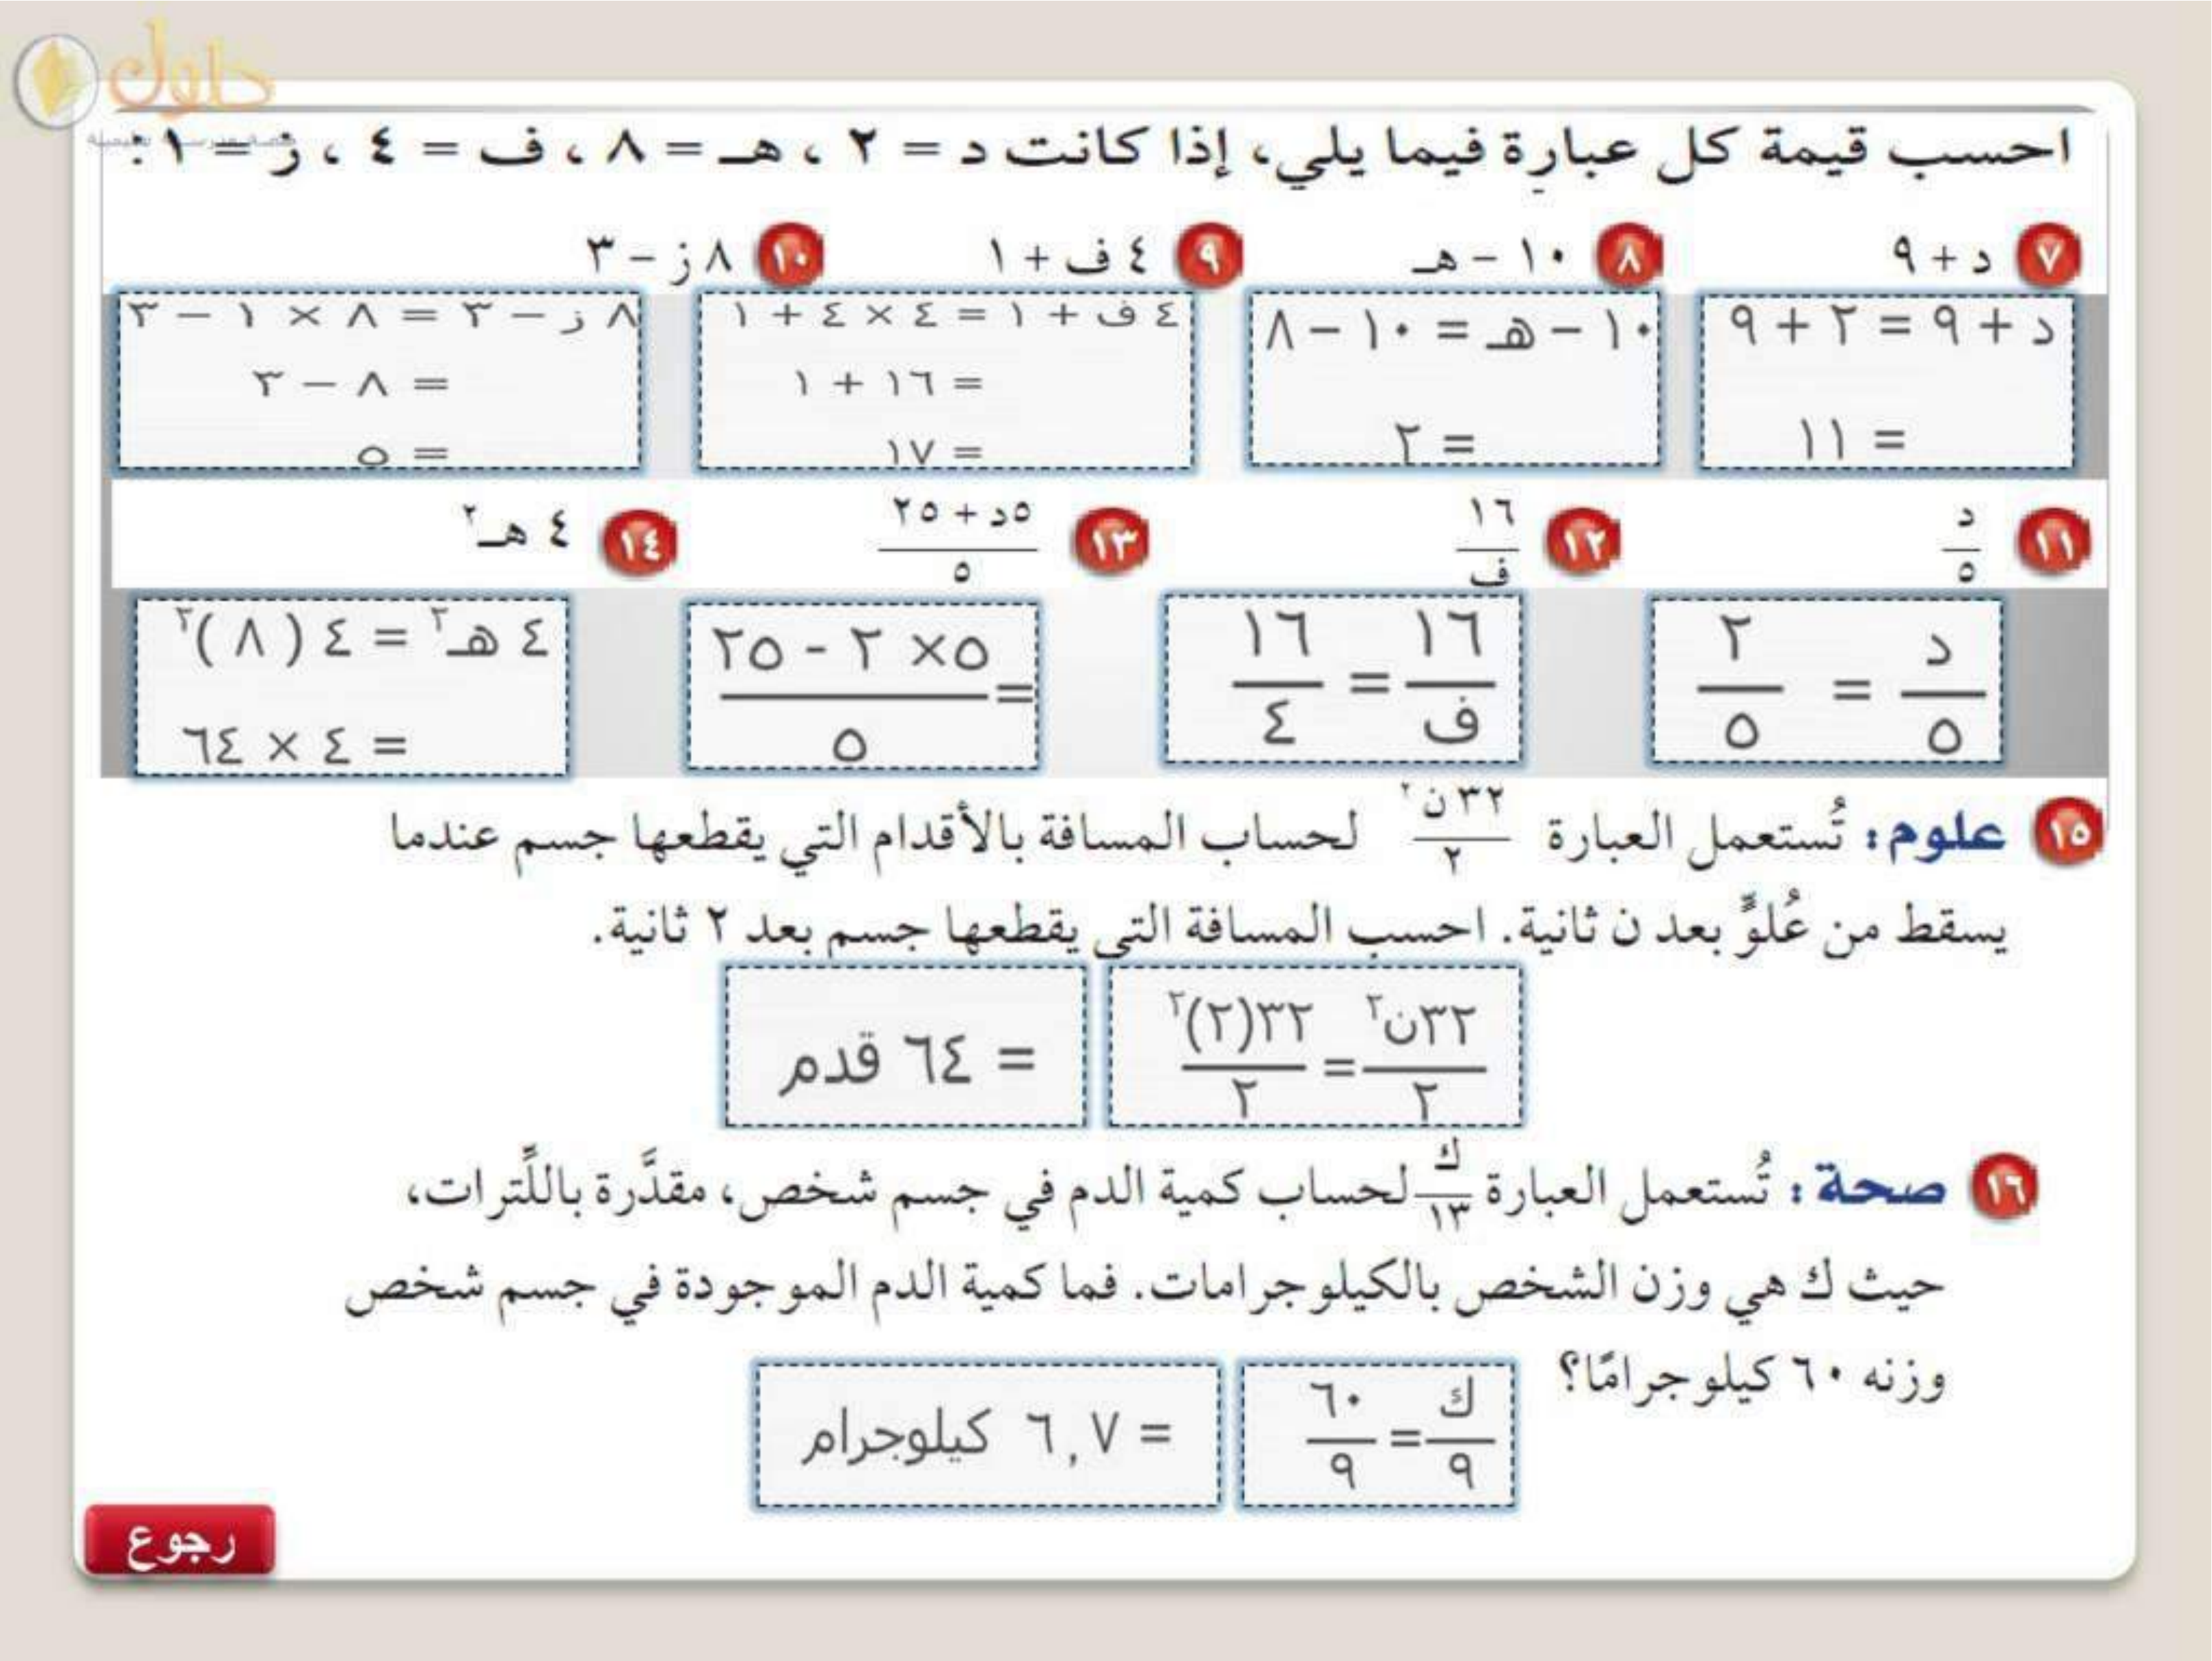 حلول
احسب قيمة كل عبارة فيما يلي، إذا كانت د = ٢ ، هـ = ٨ ، ف = ٤ ، ز = ١ :
٧ د + ٩
٨ ١٠ - هـ
٩ ٤ ف + ١
١٠ ٨ ز - ٣
د + ٩ = ٢ + ٩
= ١١
١٠ - هـ = ١٠ - ٨
= ٢
٤ ف + ١ = ٤ × ٤ + ١
= ١٦ + ١
= ١٧
٨ ز - ٣ = ٨ × ١ - ٣
= ٨ - ٣
= ٥
١١ د/٥
١٢ ١٦/ف
١٣ (٥د + ٢٥)/٥
١٤ ٤ هـ٢
د/٥ = ٢/٥
١٦/ف = ١٦/٤
= (٥× ٢ - ٢٥)/٥
٤ هـ٢ = ٤ ( ٨ )٢
= ٤ × ٦٤
١٥ علوم: تُستعمل العبارة ٣٢ن٢/٢ لحساب المسافة بالأقدام التي يقطعها جسم عندما
يسقط من عُلوٍّ بعد ن ثانية. احسب المسافة التي يقطعها جسم بعد ٢ ثانية.
٣٢ن٢/٢ = ٣٢(٢)٢/٢
= ٦٤ قدم
١٦ صحة: تُستعمل العبارة ك/١٣ لحساب كمية الدم في جسم شخص، مقدَّرة باللِّترات،
حيث ك هي وزن الشخص بالكيلوجرامات. فما كمية الدم الموجودة في جسم شخص
وزنه ٦٠ كيلوجرامًا؟
ك/٩ = ٦٠/٩
= ٦,٧ كيلوجرام
رجوع